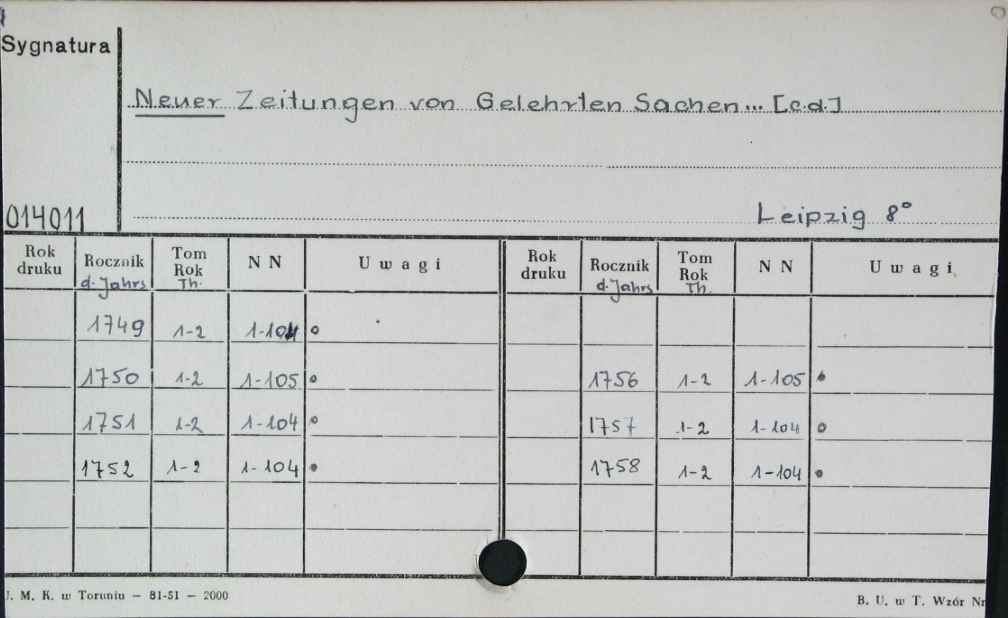 Sygnatura
Neuer Zeitungen von Gelehrten Sachen... [c.d.]
014011
Leipzig 8°
Rok druku Rocznik d. Jahrs Tom Rok Th. NN Uwagi Rok druku Rocznik d. Jahrs Tom Rok Th. NN Uwagi
1749 1-2 1-104
1750 1-2 1-105 1756 1-2 1-105
1751 1-2 1-104 1757 1-2 1-104
1752 1-2 1-104 1758 1-2 1-104
U. M. K. w Toruniu — 81-51 — 2000
B. U. w T. Wzór Nr